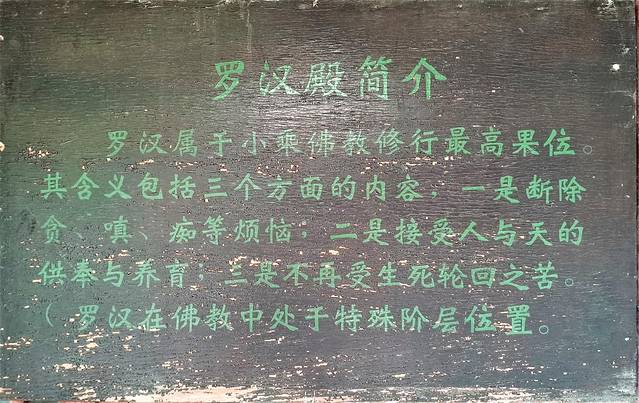 罗汉殿简介
罗汉属于小乘佛教修行最高果位。
其含义包括三个方面的内容，一是断除
贪、嗔、痴等烦恼；二是接受人与天的
供奉与养育；三是不再受生死轮回之苦。
（罗汉在佛教中处于特殊阶层位置。